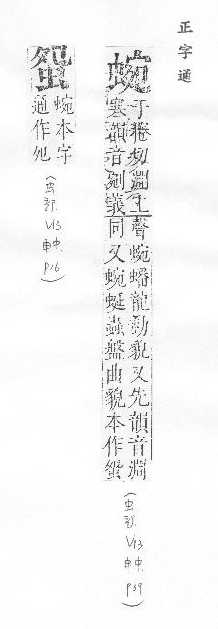 正字通
蜿
于卷切淵上聲蜿蟠龍動貌又先韻音淵
寒韻音剜義同又蜿蜒蟲盤曲貌本作䖤
(虫部, V13, 申中, p39)
䖤
蜿本字
通作夗
(虫部, V13, 申中, p16)